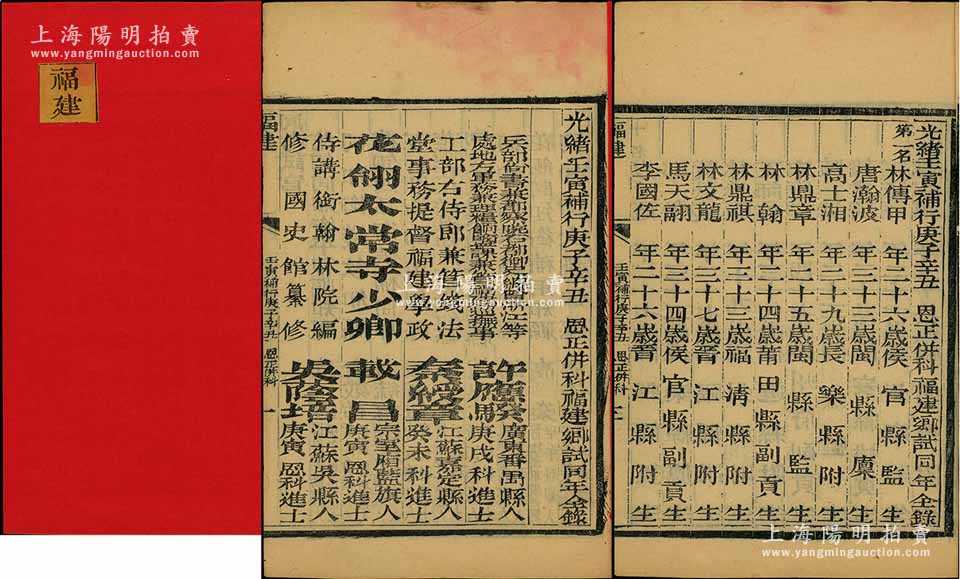 上海陽明拍賣
www.yangmingauction.com
福建
光緒壬寅補行庚子辛丑 恩正併科福建鄉試同年全錄
兵部尚書兼都察院右都御史總督閩浙等
處地方軍務兼理糧餉鹽課兼管福建巡撫事
許應騤
廣東番禺縣人
庚戌科進士
工部右侍郎兼管錢法
堂事務提督福建學政
秦綬章
江蘇嘉定縣人
癸未科進士
花翎太常寺少卿
載昌
宗室廂藍旗人
庚寅恩科進士
侍講銜翰林院編
修國史館纂修
吳蔭培
江蘇吳縣人
庚寅恩科進士
福建 壬寅補行庚子辛丑 恩正併科 一
光緒壬寅補行庚子辛丑 恩正併科福建鄉試同年全錄
第一名林傳甲 年二十六歲侯官縣監生
唐瀚波 年三十三歲閩縣廩生
高士湘 年二十九歲長樂縣附生
林鼎章 年二十五歲閩縣監生
林翰 年二十四歲莆田縣副貢生
林鼎祺 年二十三歲福清縣附生
林文龍 年三十七歲晉江縣附生
馬天翮 年三十四歲侯官縣副貢生
李國佐 年二十六歲晉江縣附生
福建 壬寅補行庚子辛丑 恩正併科
上海陽明拍賣
www.yangmingauction.com